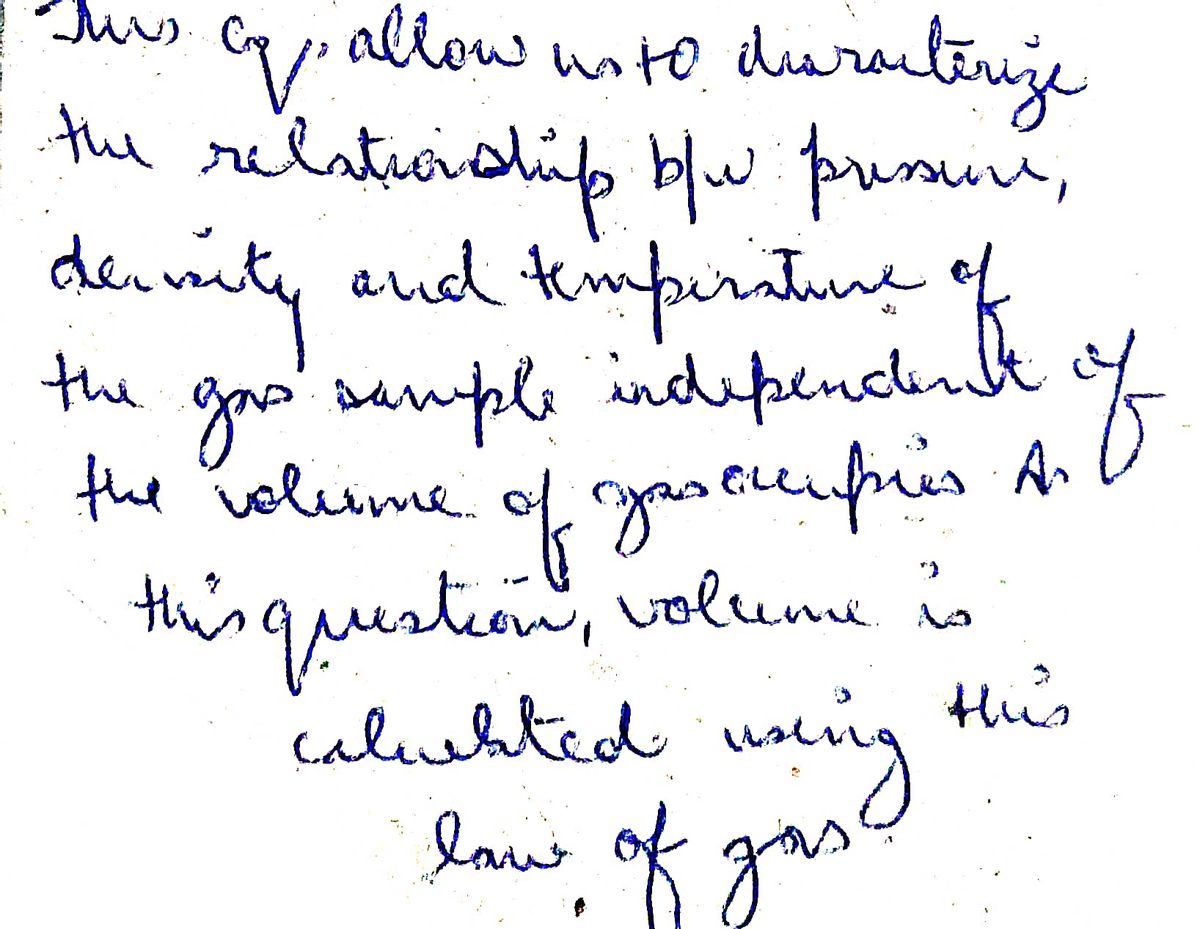 This eq. allow us to characterize
the relationship b/w pressure,
density and temperature of
the gas sample independent of
the volume of gas occupies As
this question, volume is
calculated using this
law of gas